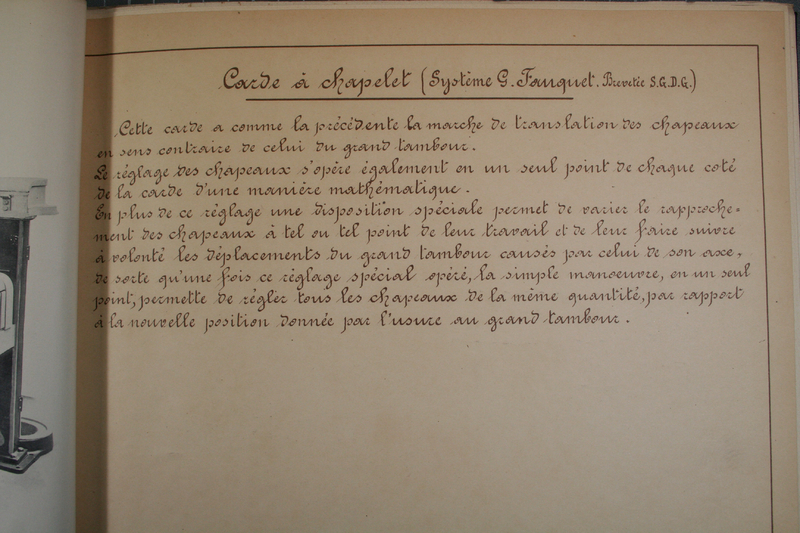 Carde à chapelet (Système G. Fauquet. Brevetée S.G.D.G.)
Cette carde a comme la précédente la marche de translation des chapeaux
en sens contraire de celui du grand tambour.
Le réglage des chapeaux s'opère également en un seul point de chaque coté
de la carde d'une manière mathématique.
En plus de ce réglage une disposition spéciale permet de varier le rapproche=
ment des chapeaux à tel ou tel point de leur travail et de leur faire suivre
à volonté les déplacements du grand tambour causés par celui de son axe,
de sorte qu'une fois ce réglage spécial opéré, la simple manoeuvre, en un seul
point, permette de régler tous les chapeaux de la même quantité, par rapport
à la nouvelle position donnée par l'usure au grand tambour.